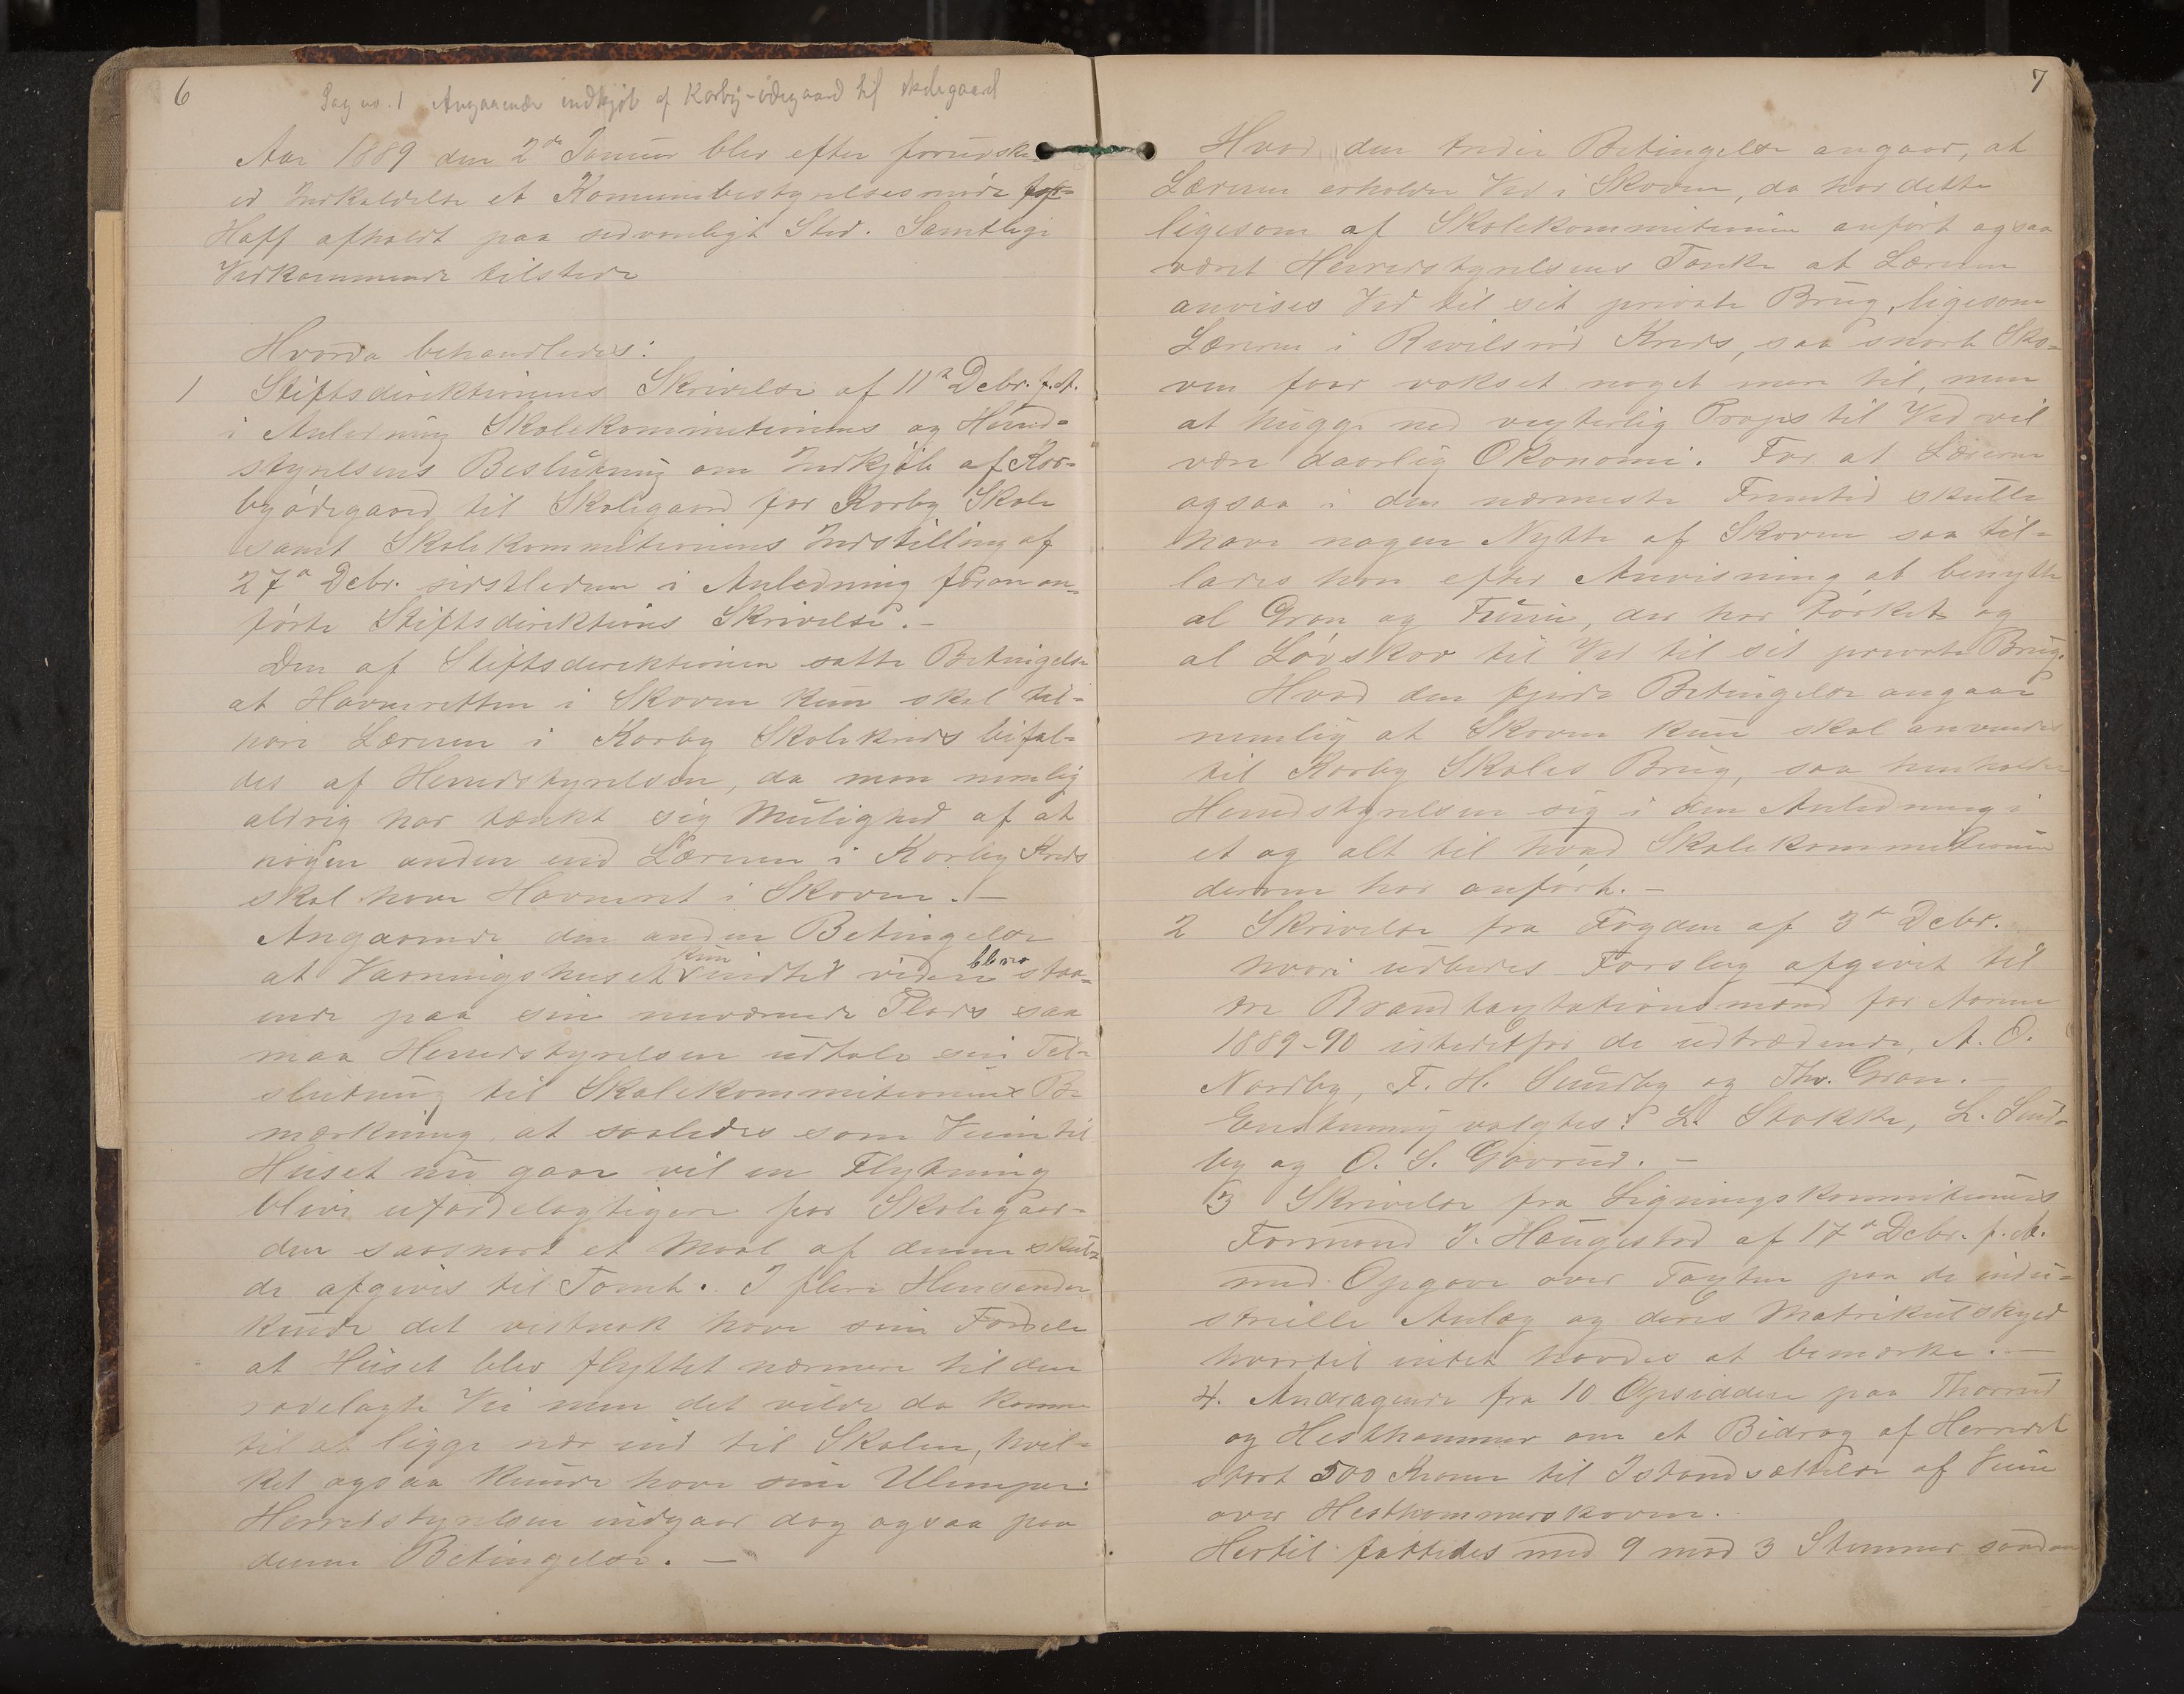 6
Sag no. 1 Angaaende indkjøb af Korby-ødegaard til skolegaard
Aar 1889 den 2de Januar blev efter forudske-
et Indkaldelse et Komunebestyrelsesmøde for
Haff afholdt paa sedvanligt Sted. Samtlige
Vedkommende tilstede
Hvorda behandledes:
1 Stiftsdirektionens Skrivelse af 11te Debr. f. A.
i Anledning Skolekommitionens og Herred-
styrelsens Beslutning om Indkjøb af Kor-
byødegaard til Skolegaard for Korby Skole
samt Skolekommitionens Indstilling af
27de Debr. sidstleden i Anledning foranan-
førte Stiftsdirektions Skrivelse. –
Den af Stiftsdirektionen satte Betingelse
at Havneretten i Skoven kun skal til-
høre Læreren i Korby Skolekreds bifal-
des af Herredstyrelsen, da man nemlig
aldrig har tænkt sig Mulighed af at
nogen anden end Læreren i Korby Kreds
skal have Havneret i Skoven. –
Angaaende den anden Betingelse
at Vaaningshuset kun indtil videre bliver staa-
ende paa sin nuværende Plads saa
maa Herredstyrelsen udtale sin Til-
slutning til Skolekommitionens Be-
mærkning, at saaledes som Veien til
Huset nu gaar vil en Flytning
blive ufordelagtigere for Skolegaar-
den saasnart et Maal af denne skul-
de afgives til Tomt. I flere Henseender
kunde det vistnok have sine Fordele
at Huset blev flyttet nærmere til den
rodelagte Vei men det vilde da komme
til at ligge nær ind til Skolen, hvil-
ket ogsaa kunde have sine Ulemper.
Herredstyrelsen indgaar dog ogsaa paa
denne Betingelse. –
7
Hvad den tredie Betingelse angaar, at
Læreren erholder Ved i Skoven, da har dette
ligesom af Skolekommitionen anført ogsaa
været Herredstyrelsens Tanke at Læreren
anvises Ved til sit private Brug, ligesom
Læreren i Revilsrud Kreds, saa snart Sko-
ven faar vokset noget mere til, men
at hugge ned vegterlig Props til Ved vil
være daarlig Økonomi. For at Læreren
ogsaa i den nærmeste Fremtid skulle
have nogen Nytte af Skoven saa til-
lades han efter Anvisning at benytte
al Gran og Furu, der har tørket og
al Løvskov til Ved til sit private Brug.
Hvad den fjerde Betingelse angaar
nemlig at Skoven kun skal anvendes
til Korby Skoles Brug, saa henholder
Herredstyrelsen sig i den Anledning i
et og alt til hvad Skolekommitionen
derom har anført. –
2 Skrivelse fra Fogden af 3de Debr.
hvori udbedes Forslag afgivet til
tre Brandtaxtationsmænd for Aarene
1889-90 istedetfor de udtrædende, A. O.
Nordby, F. H. Sundby og Thv. Gran. –
Enstemmig valgtes: L. Stokke, L. Sund-
by og O. S. Gaarud. –
3 Skrivelse fra Ligningskommitionens
Formand J. Haugestad af 17de Debr. f. A.
med Opgave over Taxten paa de indu-
strielle Anlæg og deres Matrikulskyld
hvortil intet havdes at bemærke. –
4. Andragende fra 10 Opsiddere paa Thorrud
og Hesthammer om et Bidrag af Herredet
stort 500 Kroner til Istandsættelse af Veien
over Hesthammerskoven.
Hertil fattedes med 9 mod 3 Stemmer saadan